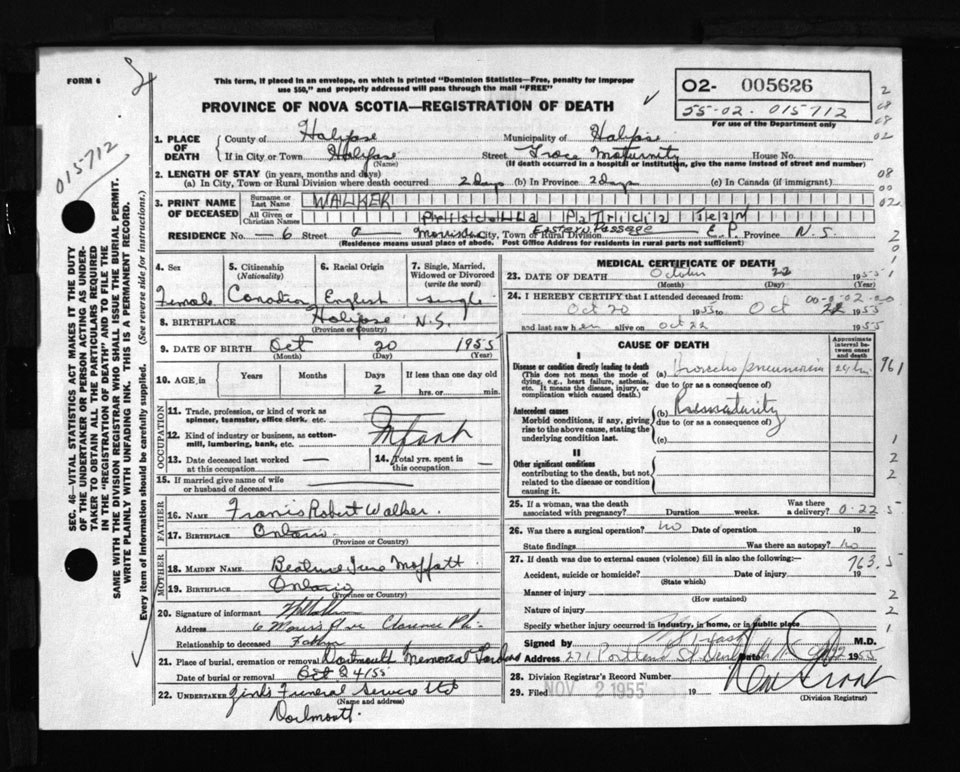 FORM 6
This form, if placed in an envelope, on which is printed "Dominion Statistics—Free, penalty for improper
use $50," and properly addressed will pass through the mail "FREE"
PROVINCE OF NOVA SCOTIA—REGISTRATION OF DEATH
O2- 005626
55-02. 015712
For use of the Department only
015712
SEC. 46—VITAL STATISTICS ACT MAKES IT THE DUTY
OF THE UNDERTAKER OR PERSON ACTING AS UNDER-
TAKER TO OBTAIN ALL THE PARTICULARS REQUIRED
IN THE "REGISTRATION OF DEATH" AND TO FILE THE
SAME WITH THE DIVISION REGISTRAR WHO SHALL ISSUE THE BURIAL PERMIT.
WRITE PLAINLY WITH UNFADING INK. THIS IS A PERMANENT RECORD.
Every item of information should be carefully supplied. (See reverse side for instructions.)
1. PLACE OF DEATH County of Halifax Municipality of Halifax
If in City or Town Halifax (Name) Street Grace Maternity House No.
(If death occurred in a hospital or institution, give the name instead of street and number)
2. LENGTH OF STAY (in years, months and days)
(a) In City, Town or Rural Division where death occurred 2 Days (b) In Province 2 Days (c) In Canada (if immigrant)
3. PRINT NAME OF DECEASED Surname or Last Name WALKER
All Given or Christian Names Priscilla Patricia Jean
RESIDENCE No. — 6 Morris City, Town or Rural Division Eastern Passage E.P. N.S.
(Residence means usual place of abode. Post Office Address for residents in rural parts not sufficient)
4. Sex Female
5. Citizenship (Nationality) Canadian
6. Racial Origin English
7. Single, Married, Widowed or Divorced (write the word) Single
8. BIRTHPLACE Halifax N.S.
(Province or Country)
9. DATE OF BIRTH Oct 20 1955
(Month) (Day) (Year)
10. AGE, in Years Months Days 2 If less than one day old
hrs. or min.
OCCUPATION
11. Trade, profession, or kind of work as spinner, teamster, office clerk, etc.
12. Kind of industry or business, as cotton-mill, lumbering, bank, etc. Infant
13. Date deceased last worked at this occupation —
14. Total yrs. spent in this occupation —
15. If married give name of wife or husband of deceased
FATHER
16. NAME Francis Robert Walker
17. BIRTHPLACE Ontario
(Province or Country)
MOTHER
18. MAIDEN NAME Beatrice June Moffatt
19. BIRTHPLACE Ontario
(Province or Country)
20. Signature of informant
Address 6 Morris Clarence
Relationship to deceased Father
21. Place of burial, cremation or removal Dartmouth Memorial Gardens
Date of burial or removal Oct 24/55
22. UNDERTAKER Funeral Service Ltd
(Name and address)
Dartmouth.
MEDICAL CERTIFICATE OF DEATH
23. DATE OF DEATH October 22 1955
(Month) (Day) (Year)
24. I HEREBY CERTIFY that I attended deceased from:
Oct 20 1955 to Oct 22 1955
and last saw her alive on Oct 22 1955
CAUSE OF DEATH
Approximate interval between onset and death
I
Disease or condition directly leading to death
(This does not mean the mode of dying, e.g., heart failure, asthenia, etc. It means the disease, injury, or complication which caused death.)
(a) pneumonia 24 hrs
due to (or as a consequence of)
Antecedent causes
Morbid conditions, if any, giving rise to the above cause, stating the underlying condition last.
(b) Prematurity
due to (or as a consequence of)
(c)
II
Other significant conditions
contributing to the death, but not related to the disease or condition causing it.
25. If a woman, was the death associated with pregnancy? Duration weeks. Was there a delivery?
26. Was there a surgical operation? No Date of operation 19
State findings Was there an autopsy? No
27. If death was due to external causes (violence) fill in also the following:—
Accident, suicide or homicide? (State which) Date of injury 19
Manner of injury (How sustained)
Nature of injury
Specify whether injury occurred in industry, in home, or in public place
763.5
Signed by M.D.
Address 271 Portland St Date 1955
28. Division Registrar's Record Number
29. Filed NOV 2 1955 19
(Division Registrar)